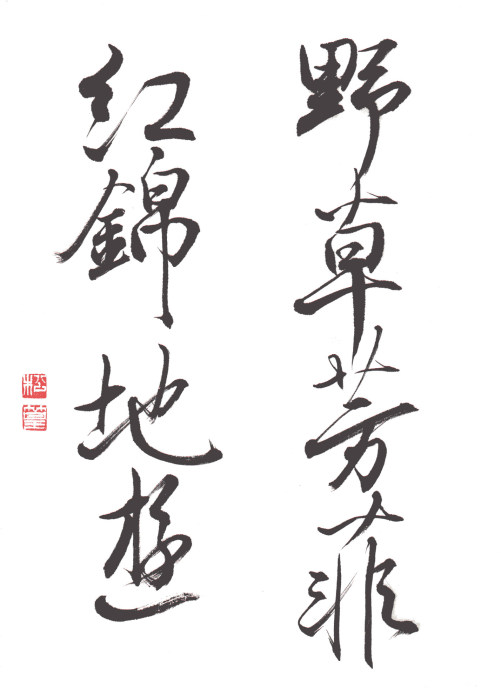 野草芳菲
紅錦地遊